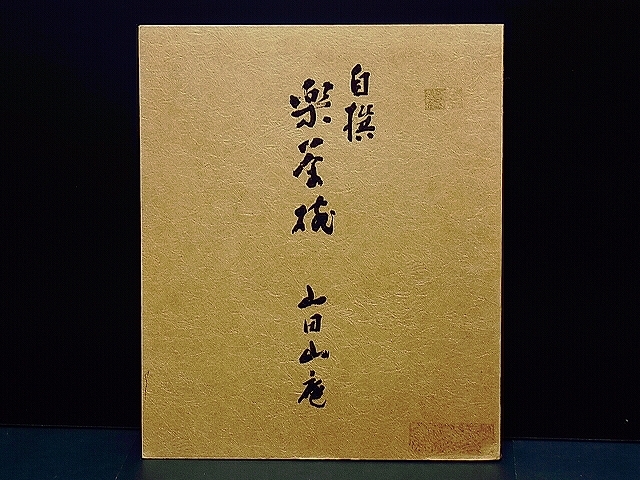 自撰
楽茶碗
山田山庵